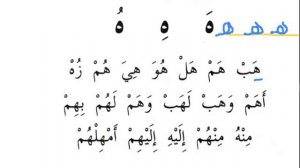 هَ هِ هُ ه ه ه
هَبْ هَمْ هَلْ هُوَ هِيَ هُمْ زُهْ
أَهَمْ وَهَبْ لَهَبْ وَهَمْ لَهُمْ بِهِمْ
مِنْهُ مِنْهُمْ إِلَيْهِ إِلَيْهِمْ أَمْهِلْهُمْ